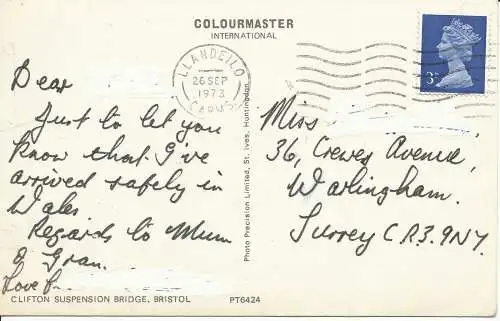 COLOURMASTER
INTERNATIONAL
LLANDEILO
26 SEP
1973
3P
Dear
Just to let you
know that I've
arrived safely in
Wales.
Regards to Mum
& Gran.
Love
Photo Precision Limited, St. Ives, Huntingdon
Miss
36, Crewes Avenue,
Warlingham.
Surrey C.R.3.9NY.
CLIFTON SUSPENSION BRIDGE, BRISTOL
PT6424